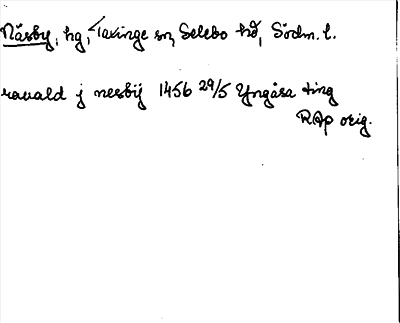 Näsby, hg, Taxinge sn, Selebo hd, Södm. l.
ravald j nesbij 1456 29/5 Yngåsa ting
RAp orig.